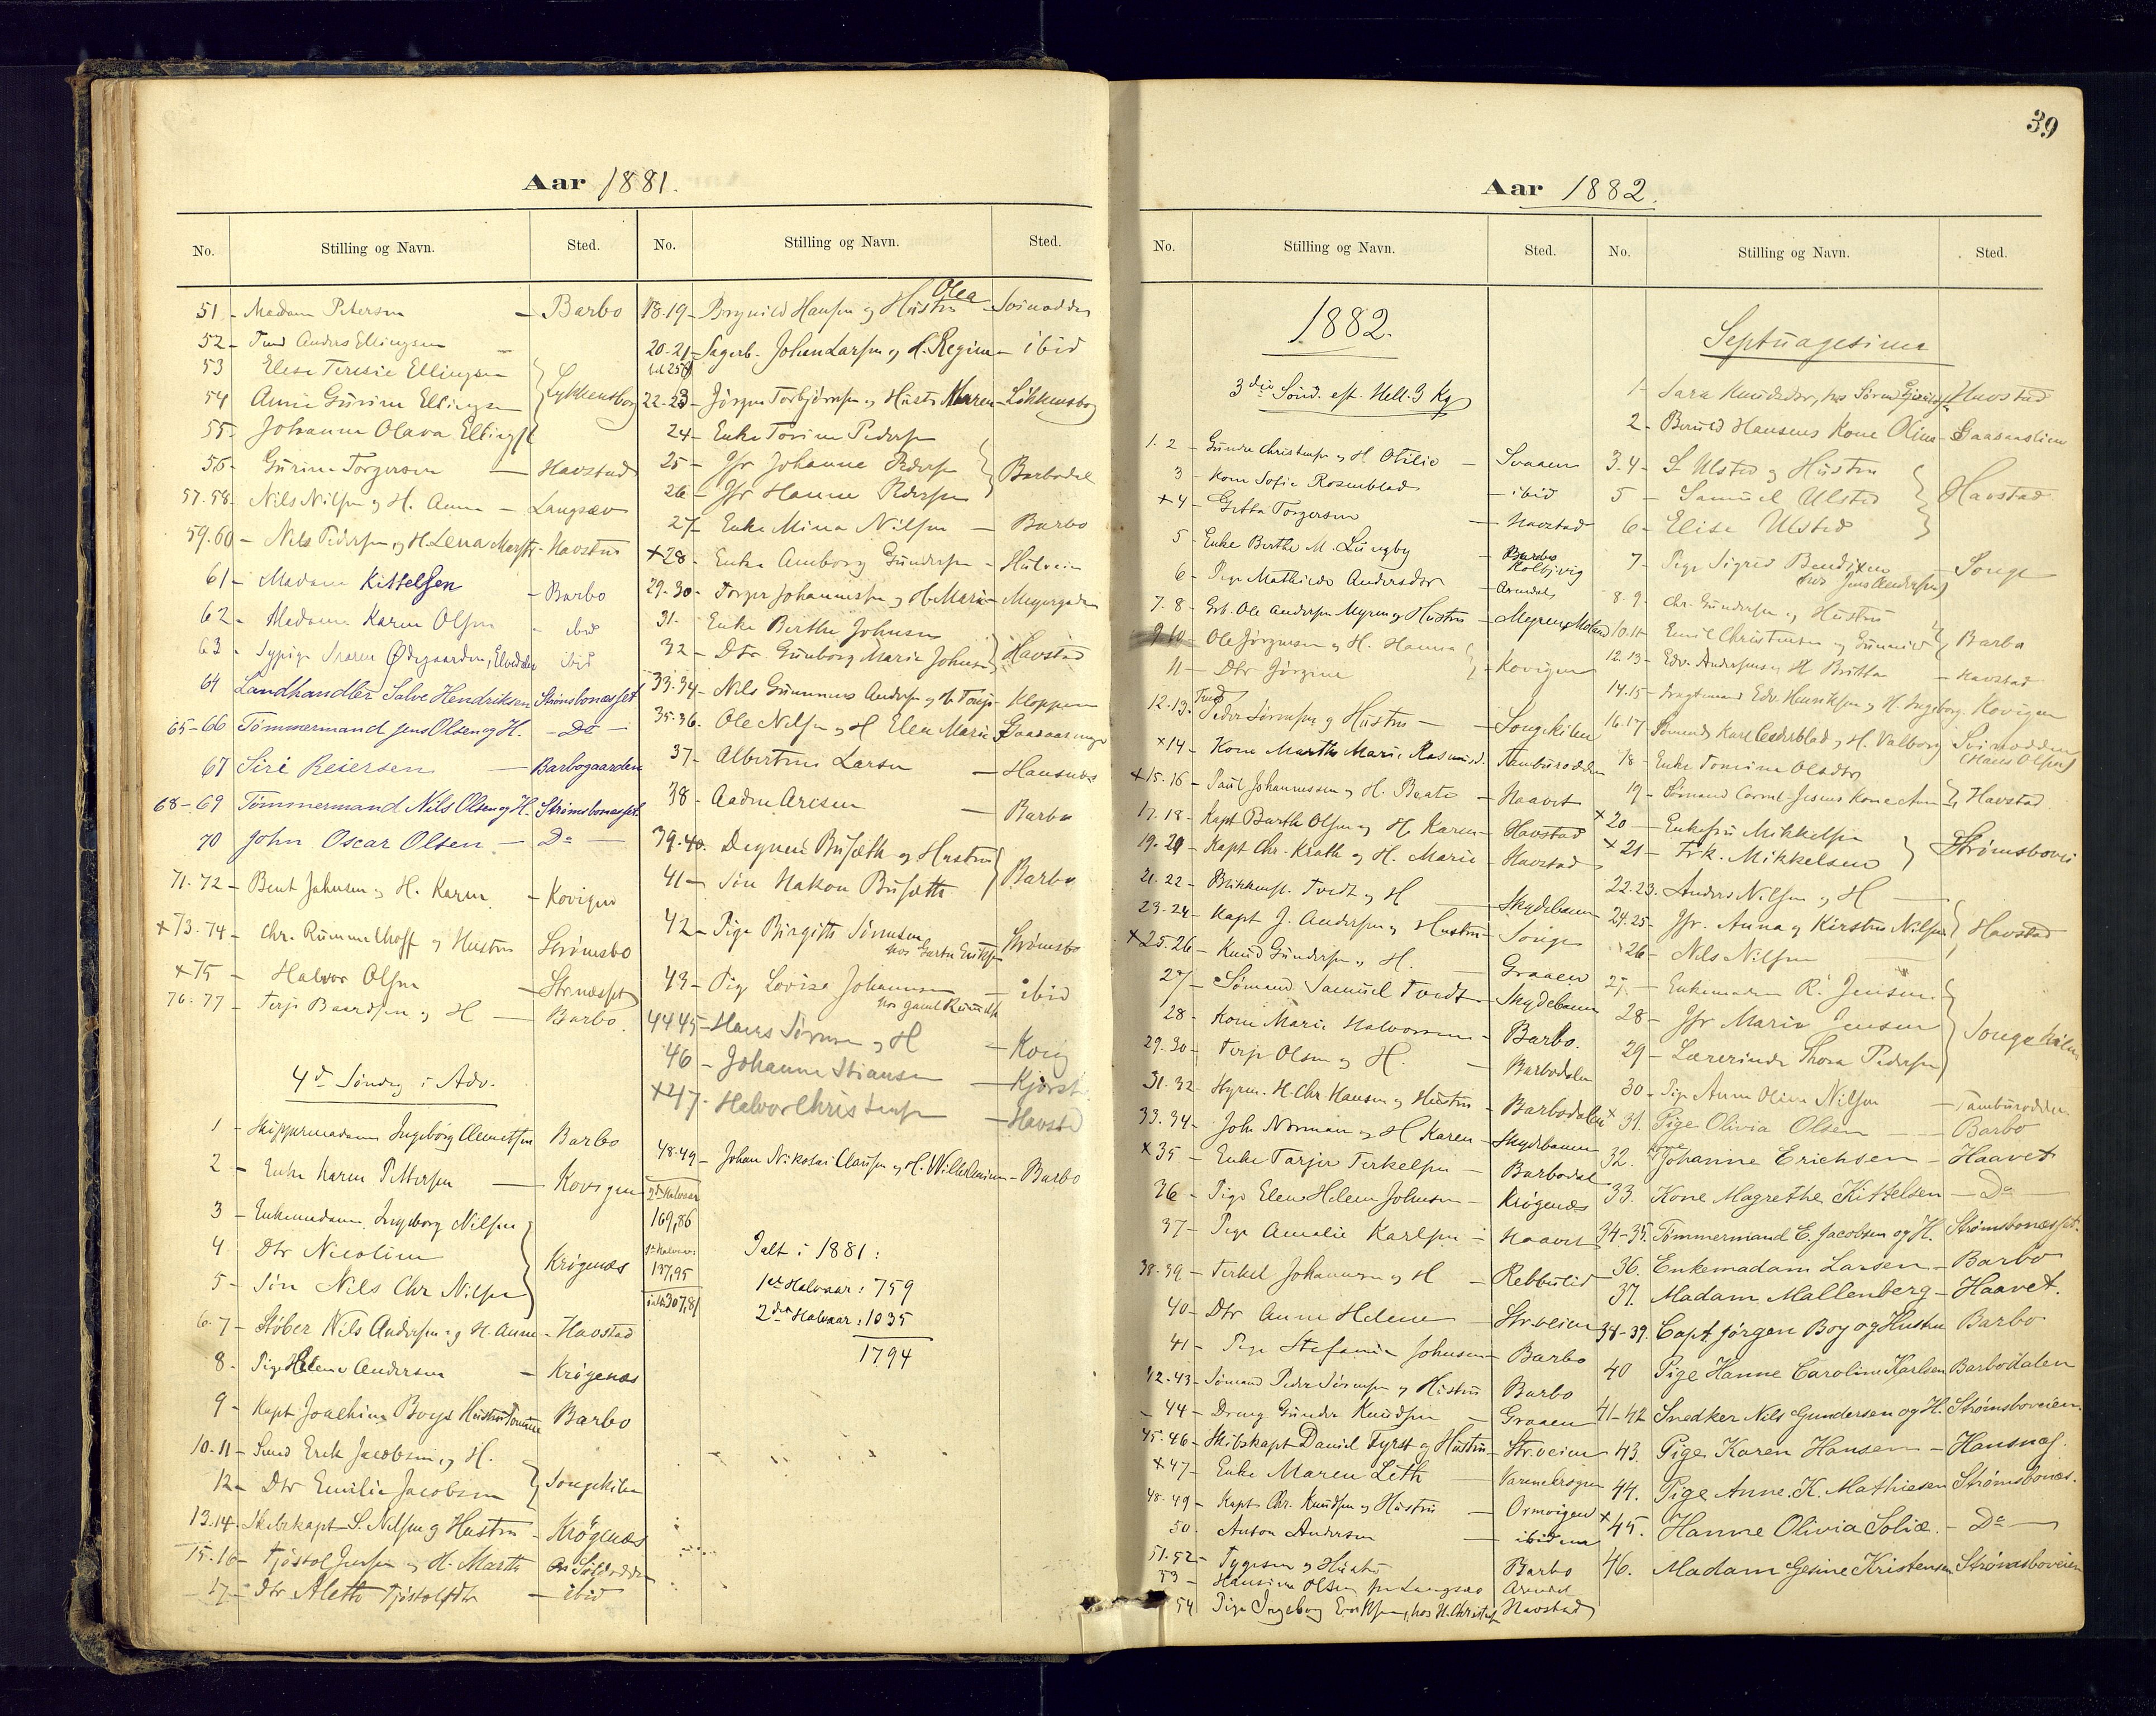 Aar 1881.
No. Stilling og Navn. Sted.
51 - Madam Petersen - Barbo
52 - Tmd Anders Ellingsen
53 Elise Teresie Ellingsen
54 Anne Gurine Ellingsen Lykkensborg
55 - Johanne Olava Ellings
56 - Gurine Torgersen - Havstad
57-58 - Nils Nilsen og H. Anna - Langsæv
59.60 - Nils Pedersen og H. Lena Marthe - Havstad
61 - Madam Kittelsen - Barbo
62 - Madame Karen Olsen - ibid
63 - Sypige Maren Ødegaarden, ibid
64 Landhandler Salve Hendriksen Strømsbonæsset
65-66 Tømmermand Jens Olsen og H. - Do -
67 Siri Reiersen - Barbogaarden
68-69 Tømmermand Nils Olsen og H. Strømsbonæsset
70 John Oscar Olsen - Do -
71.72 - Bent Johnsen og H. Karen - Kovigen
x 73.74 - Chr. Rummelhoff og Hustru Strømsbo
x 75 - Halvor Olsen - Str.næsset
76-77 - Terje Baardsen og H - Barbo.
4de Søndag i Adv.
1 - Skippermadam Ingeborg Clemetsen Barbo
2 - Enke Karen Pettersen - Kovigen
3 - Enkemadam Ingeborg Nilsen
4 - Dtr Nicoline Krøgenæs
5 - Søn Nils Chr Nilsen
6.7 - Støber Nils Andersen og H. Anne - Havstad
8 - Pige Helene Andersen - Krøgenæs
9 - Kapt Joachim Boys Hustru Tomine Barbo
10.11 - Smd Erik Jacobsen og H.
12 - Dtr Emilie Jacobsen Songekilen
13.14 - Skibskapt S. Nilsen og Hustru - Krøgenæs
15.16 - Tjøstol Jensen og H. Marthe
17 - Dtr Alette Tjøstolsdtr - ibid
No. Stilling og Navn. Sted.
18.19 - Brynild Hansen og Hustru Olea - Svinodden
20-21 - Lagerb. Johan Larsen og H. Regine - ibid
22-23 - Jørgen Torbjørnsen og Hustr Maren - Løkkensborg
24 - Enke Torine Pedersen
25 - Jfr Johanne Pedersen Barbodal
26 - Jfr Hanne Pedersen
27 - Enke Mina Nilsen - Barbo
x 28 - Enke Anborg Gundersen -
29.30 - Torger Johannesen og H. Marie - Myrgaden
31. Enke Berthe Johnsen
32 - Dtr. Gunborg Marie Johnsen Havstad
33.34 - Nils Gunnerus Andersen og H. - Kloppene
35.36. Ole Nilsen og H Elen Marie
37 - Albertine Larsen - Hansnæs
38 - Aadne Aresen - Barbo
39.40. Degnen Busæth og Hustru
41 - Søn Hakon Busæth Barbo
42 - Pige Birgitte Simonsen Strømsbo
hos Gartn Eriksen
43 - Pige Lovise Johannesen - ibid
hos gamle Knudsen
44 45 - Hans Sørensen og H - Kovig
46 - Johanne Stiansen - Kjørst
x 47 - Halvor Christensen - Havsta
48.49 - Johan Nikolai Clausen og H. Wilhelmine - Barbo
2det Halvaar
169,86
1te Halvaar:
137,95
ialt 307,81
Ialt i 1881:
1ste Halvaar: 759
2det Halvaar: 1035
1794
39
Aar 1882.
No. Stilling og Navn. Sted.
1882.
3die Sønd. eft. Hell. 3 Kg
1.2 - Gunder Christensen og H Otilie - Svaaen
3 - Kone Sofie Rosenblad - ibid
x 4 - Gitta Torgersen - Havstad
5 - Enke Berthe M. Lungby - Barbo Kolbjvig
6 - Pige Mathilde Andersdtr - Arendal
7.8 - Grb. Ole Andersen Myren og Hustru - Myren, Moland
9.10 - Ole Jørgensen og H. Hanna
11 - Dtr Jørgine - Kovigen
12.13. Tmd Peder Sørensen og Hustru - Songekilen
x 14 - Kone Marthe Marie Rasmusd. Tamburodden
x 15.16 - Paul Johannessen og H. Beate - Haavet
17.18 - Kapt Barth Olsen og H. Karen - Havstad
19.20 - Kapt Chr. Krath og H. Marie - Havstad
21.22 - Blikkensl. Tvedt og H - Skydebanen
23.24 - Kapt J. Andersen og Hustru - Songe
x 25.26 - Knud Gundersen og H. - Graaen
27 - Sømand Samuel Tvedt - Skydebanen
28 - Kone Marie Halvorsen - Barbo.
29.30 - Terje Olsen og H. - Barbodalen
31.32 - Hyrm. H. Chr Hansen og Hustru - Barbodalen
33.34 - John Norman og H Karen - Skydebanen
x 35 - Enke Tarjer Terkelsen - Barbodal
36 - Pige Elen Helene Johnsen - Krøgenæs
37 - Pige Amalie Karlsen - Haavet
38.39 - Terkel Johannesen og H - Rebbulid
40 - Dtr Anne Helene - Str.veien
41 - Pige Stefanie Johnsen - Barbo
42.43 - Sømand Peder Sørensen og Hustru Barbo
44 - Dreng Gunder Knudsen - Graaen
45.46 - Skibskapt Daniel Fyrst og Hustru - Str.veien
x 47 - Enke Maren Leth -
48.49 - Kapt Chr. Knudsen og Hustru - Ormvigen
50 - Anton Andersen - ibidem
51.52 - Tygesen og Hustru Barbo
53 - Hansine Olsen fra Langsæv Arendal
54 Pige Ingeborg Eriksen, hos H. Christens Havstad
No. Stilling og Navn. Sted.
Septuagesima
1 - Sara Knudsdtr, hos Søren Havstad
2 - Berulf Hansens Kone Oline - Gaasaaslien
3.4 - S Ulsted og Hustru
5 - Samuel Ulsted Havstad
6 - Elise Ulsted
7 - Pige Sigrid Bendixen - Songe
hos Jens Andersen
8.9 - Chr. Gundersen og Hustru
10.11 - Emil Christensen og Gunnild Barbo
12.13 - Edv. Andersen og H Britta - Havstad
14.15 - Fragtemand Edv. Henriksen og H. Ingeborg. Kovigen
16.17 Sømand Karl Cederblad og H. Valborg Svinodden
(Hans Olsen)
18 - Enke Tomine Olsdtr
19 - Sømand Kone Ane Havstad
x 20 - Enkefru Mikkelsen
x 21 - Frk. Mikkelsen Strømsbovei
22.23. Anders Nilsen og H -
24.25 - Jfr. Anna og Kirstine Nilsen Havstad
26 - Nils Nilsen
27. - Enkemadam R. Jensen
28 - Jfr Marie Jensen Songekilen
29 - Lærerinde Thora Pedersen
30 - Pige Anne Olivia Nilsen - Tamburodden
x 31. Pige Olivia Olsen - Barbo
32. Kone Johanne Erichsen - Haavet
33. Kone Magrethe Kittelsen - Do
34-35. Tømmermand E. Jacobsen og H. Strømsbonæsset.
36. Enkemadam Larsen - Barbo
37. Madam Mallenberg - Haavet.
38-39. Capt. Jørgen Boy og Hustru Barbo
40 Pige Hanne Caroline Karlsen Barbodalen
41-42 Snedker Nils Gundersen og H. Strømsboveien.
43. Pige Karen Hansen - Hansnæs.
44. Pige Anne. K. Mathiesen Strømsbonæs.
x 45. Hanne Olivia Solie. - Do -
46. Madam Gesine Kristensen Strømsboveien